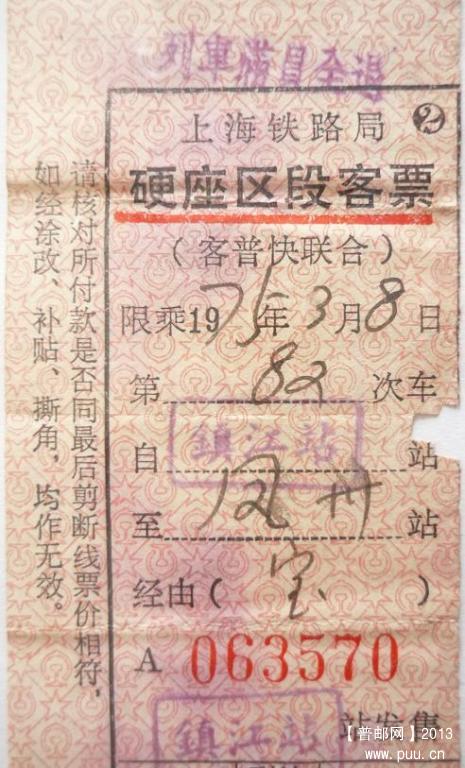 列車满員全退
上海铁路局 2
硬座区段客票
（客普快联合）
限乘1975年3月8日
第82次车
自鎮江站站
至凤州站
经由（宝）
A 063570
鎮江站 站发售
请核对所付款是否同最后剪断线票价相符，
如经涂改、补贴、撕角，均作无效。
【普邮网】2013
www.puu.cn